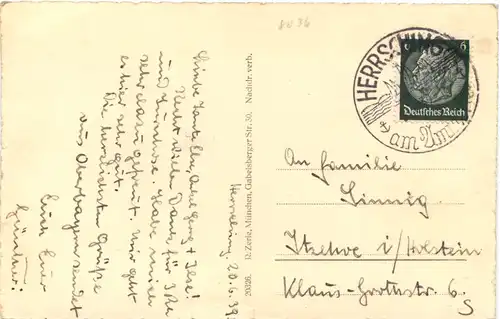 80 36
Herrsching, 20.6.39
Liebe Tante Else, Onkel Georg + Ilse!
Recht vielen Dank für
und Habe mich
sehr darüber gefreut. Mir geht
es hier sehr gut.
Die herzlichsten Grüße
aus Oberbayern sendet
Euch Euer
Günther!
20326. R. Zerle, München, Gabelsberger Str. 30. Nachdr. verb.
HERRSCHING
am Am
6
Deutsches Reich
An Familie
Sinnig
Itzehoe i/Holstein
Klaus-Grothstr. 6